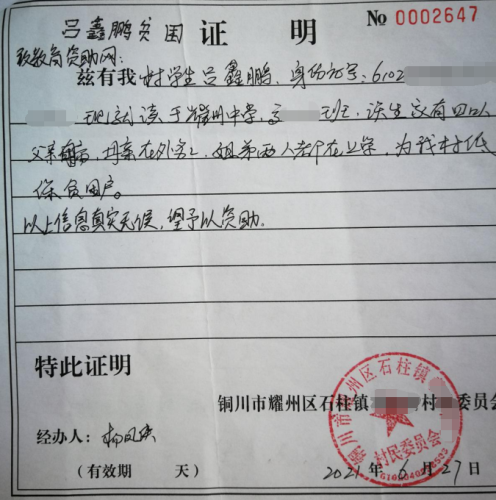 吕鑫鹏贫困 证明 № 0002647
致教育资助网:
兹有我村学生吕鑫鹏，身份证号:6102
现就读于耀州中学，高 班，该生家有四口人
父亲 ，母亲在外务工，姐弟两人都在上学，为我村低
保贫困户。
以上信息真实无误，望予以资助.
特此证明
铜川市耀州区石柱镇 村 委员会
经办人:
(有效期 天) 2021年6月27日
铜川市耀州区石柱镇
村民委员会